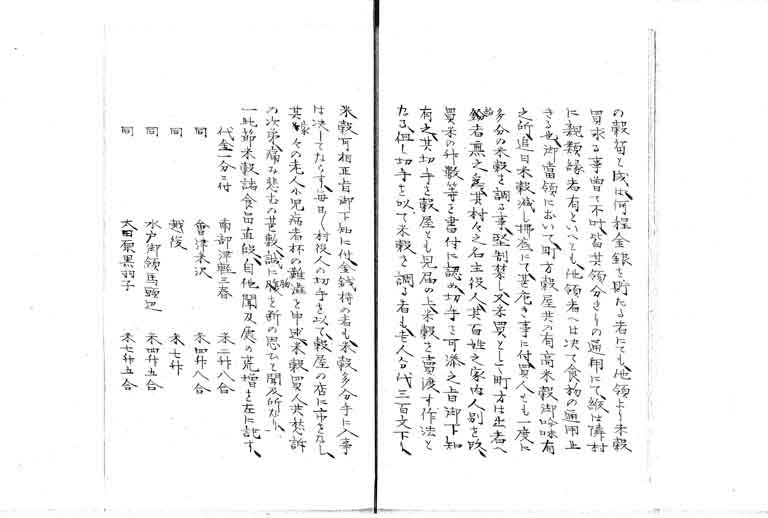 の穀留と成は何程金銀を貯たる者にても他領より米穀
買求る事曽て不叶皆其領分きりの通用にて縦は隣村
に親類縁者有といへとも他領者へは決て食物の通用止
きる也御當領において町方穀屋共の有高米穀御吟味有
之所追日米穀減し拂底にて甚危き事に付買人とも一度に
多分の米穀を調る事堅制禁し又米買として町方は出者へ
者無之為其村々之名主役人其百姓之家内人別を改
買米の升数等を書付に認め切手を可添之旨御下知
有之其切手を穀屋とも見届の上米穀を賣渡す作法と
たる但し切手を以て米穀を調る者も壱人口代三百文下し
米穀可相正旨御下知に付金銭持の者も米穀多分手に入事
は決してならす毎日村役人の切手を以て穀屋の店に市をなし
其々の老人小児病者杯の難渋を申述米穀買人共愁訴
の次第痛み悲むの甚敷誠に腹を断の思ひと聞及所なり
一此節米穀諸食品直段自他聞及處の荒増を左に記す
代金一分ニ付 南部津軽三春 米二升八合
同 會津米沢 米四升八合
同 越後 米七升
同 水戸御領馬頭辺 米四升五合
同 太田原黒羽子 米七升五合